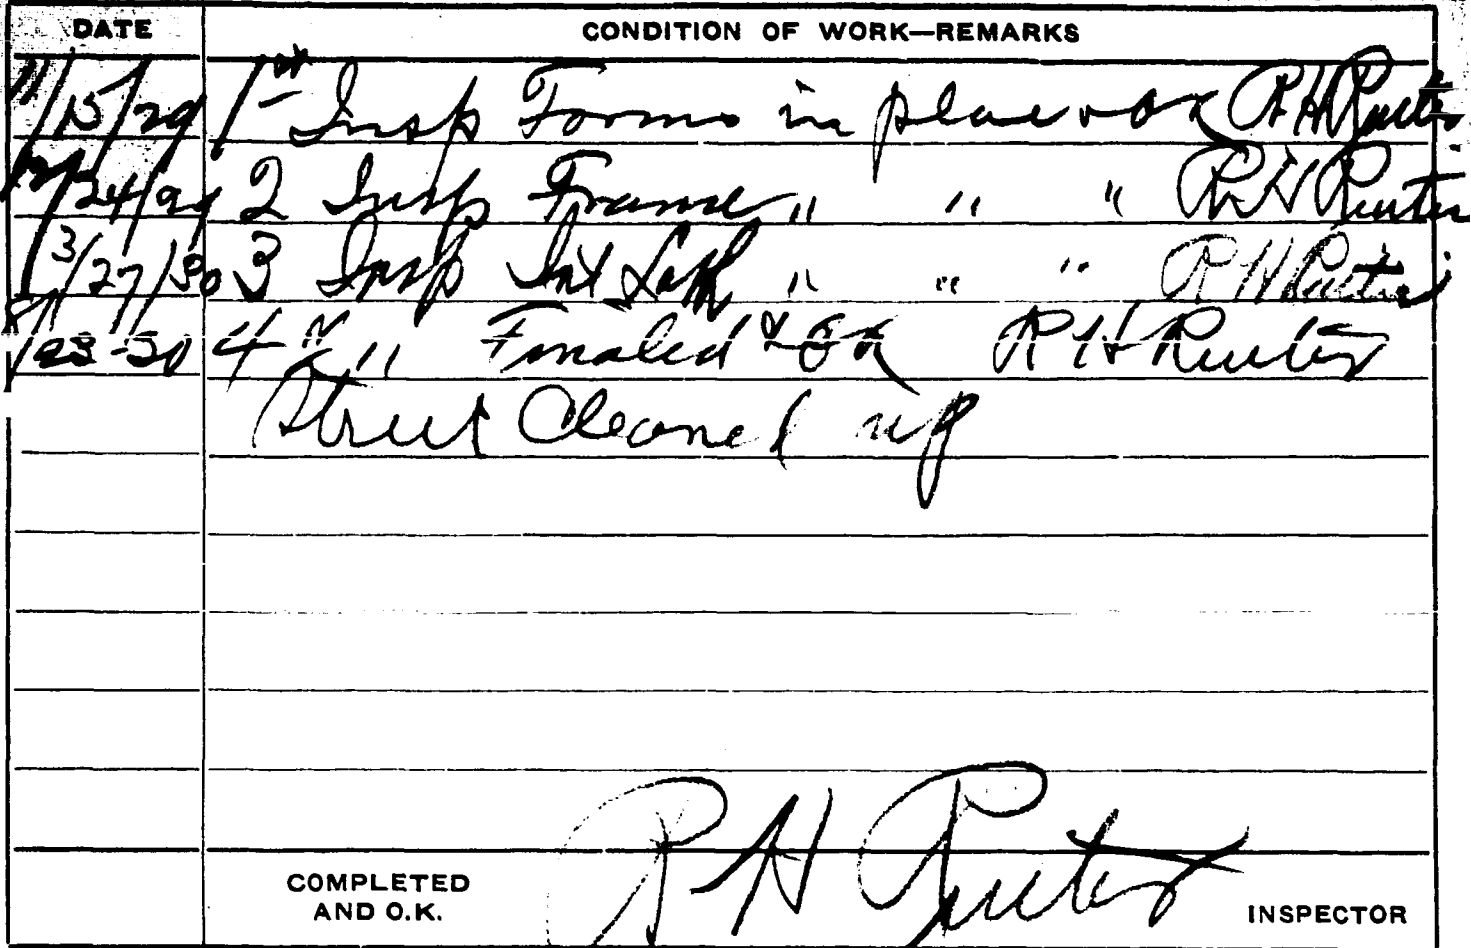 DATE CONDITION OF WORK—REMARKS
11/15/29 1st Insp Forms in place & OK R H Reuter
12/24/29 2 Insp Frame " " " R H Reuter
3/27/30 3 Insp Int Lath " " " R H Reuter
23-30 4 " " Finaled & OK R H Reuter
Street Cleaned up
COMPLETED R H Reuter
AND O.K. INSPECTOR